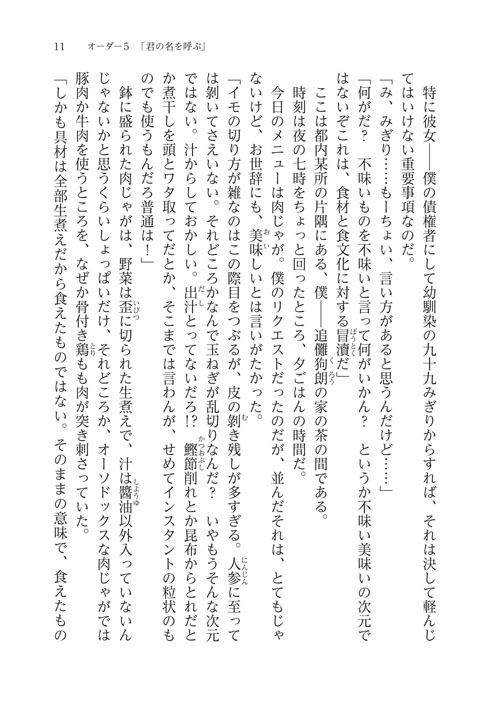 11　オーダー5　「君の名を呼ぶ」
　特に彼女――僕の債権者にして幼馴染の九十九みぎりからすれば、それは決して軽んじ
てはいけない重要事項なのだ。
「み、みぎり……もーちょい、言い方があると思うんだけど……」
「何がだ？　不味いものを不味いと言って何がいかん？　というか不味い美味いの次元で
はないぞこれは、食材と食文化に対する冒瀆だ」
　ここは都内某所の片隅にある、僕――追儺狗朗の家の茶の間である。
　時刻は夜の七時をちょっと回ったところ、夕ごはんの時間だ。
　今日のメニューは肉じゃが。僕のリクエストだったのだが、並んだそれは、とてもじゃ
ないけど、お世辞にも、美味しいとは言いがたかった。
「イモの切り方が雑なのはこの際目をつぶるが、皮の剝き残しが多すぎる。人参に至って
は剝いてさえいない。それどころかなんで玉ねぎが乱切りなんだ？　いやもうそんな次元
ではない。汁からしておかしい。出汁とってないだろ!?　鰹節削れとか昆布からとれだと
か煮干しを頭とワタ取ってだとか、そこまでは言わんが、せめてインスタントの粒状のも
のでも使うもんだろ普通は！」
　鉢に盛られた肉じゃがは、野菜は歪に切られた生煮えで、汁は醬油以外入っていないん
じゃないかと思うくらいしょっぱいだけ、それどころか、オーソドックスな肉じゃがでは
豚肉か牛肉を使うところを、なぜか骨付き鶏もも肉が突き刺さっていた。
「しかも具材は全部生煮えだから食えたものではない。そのままの意味で、食えたもの